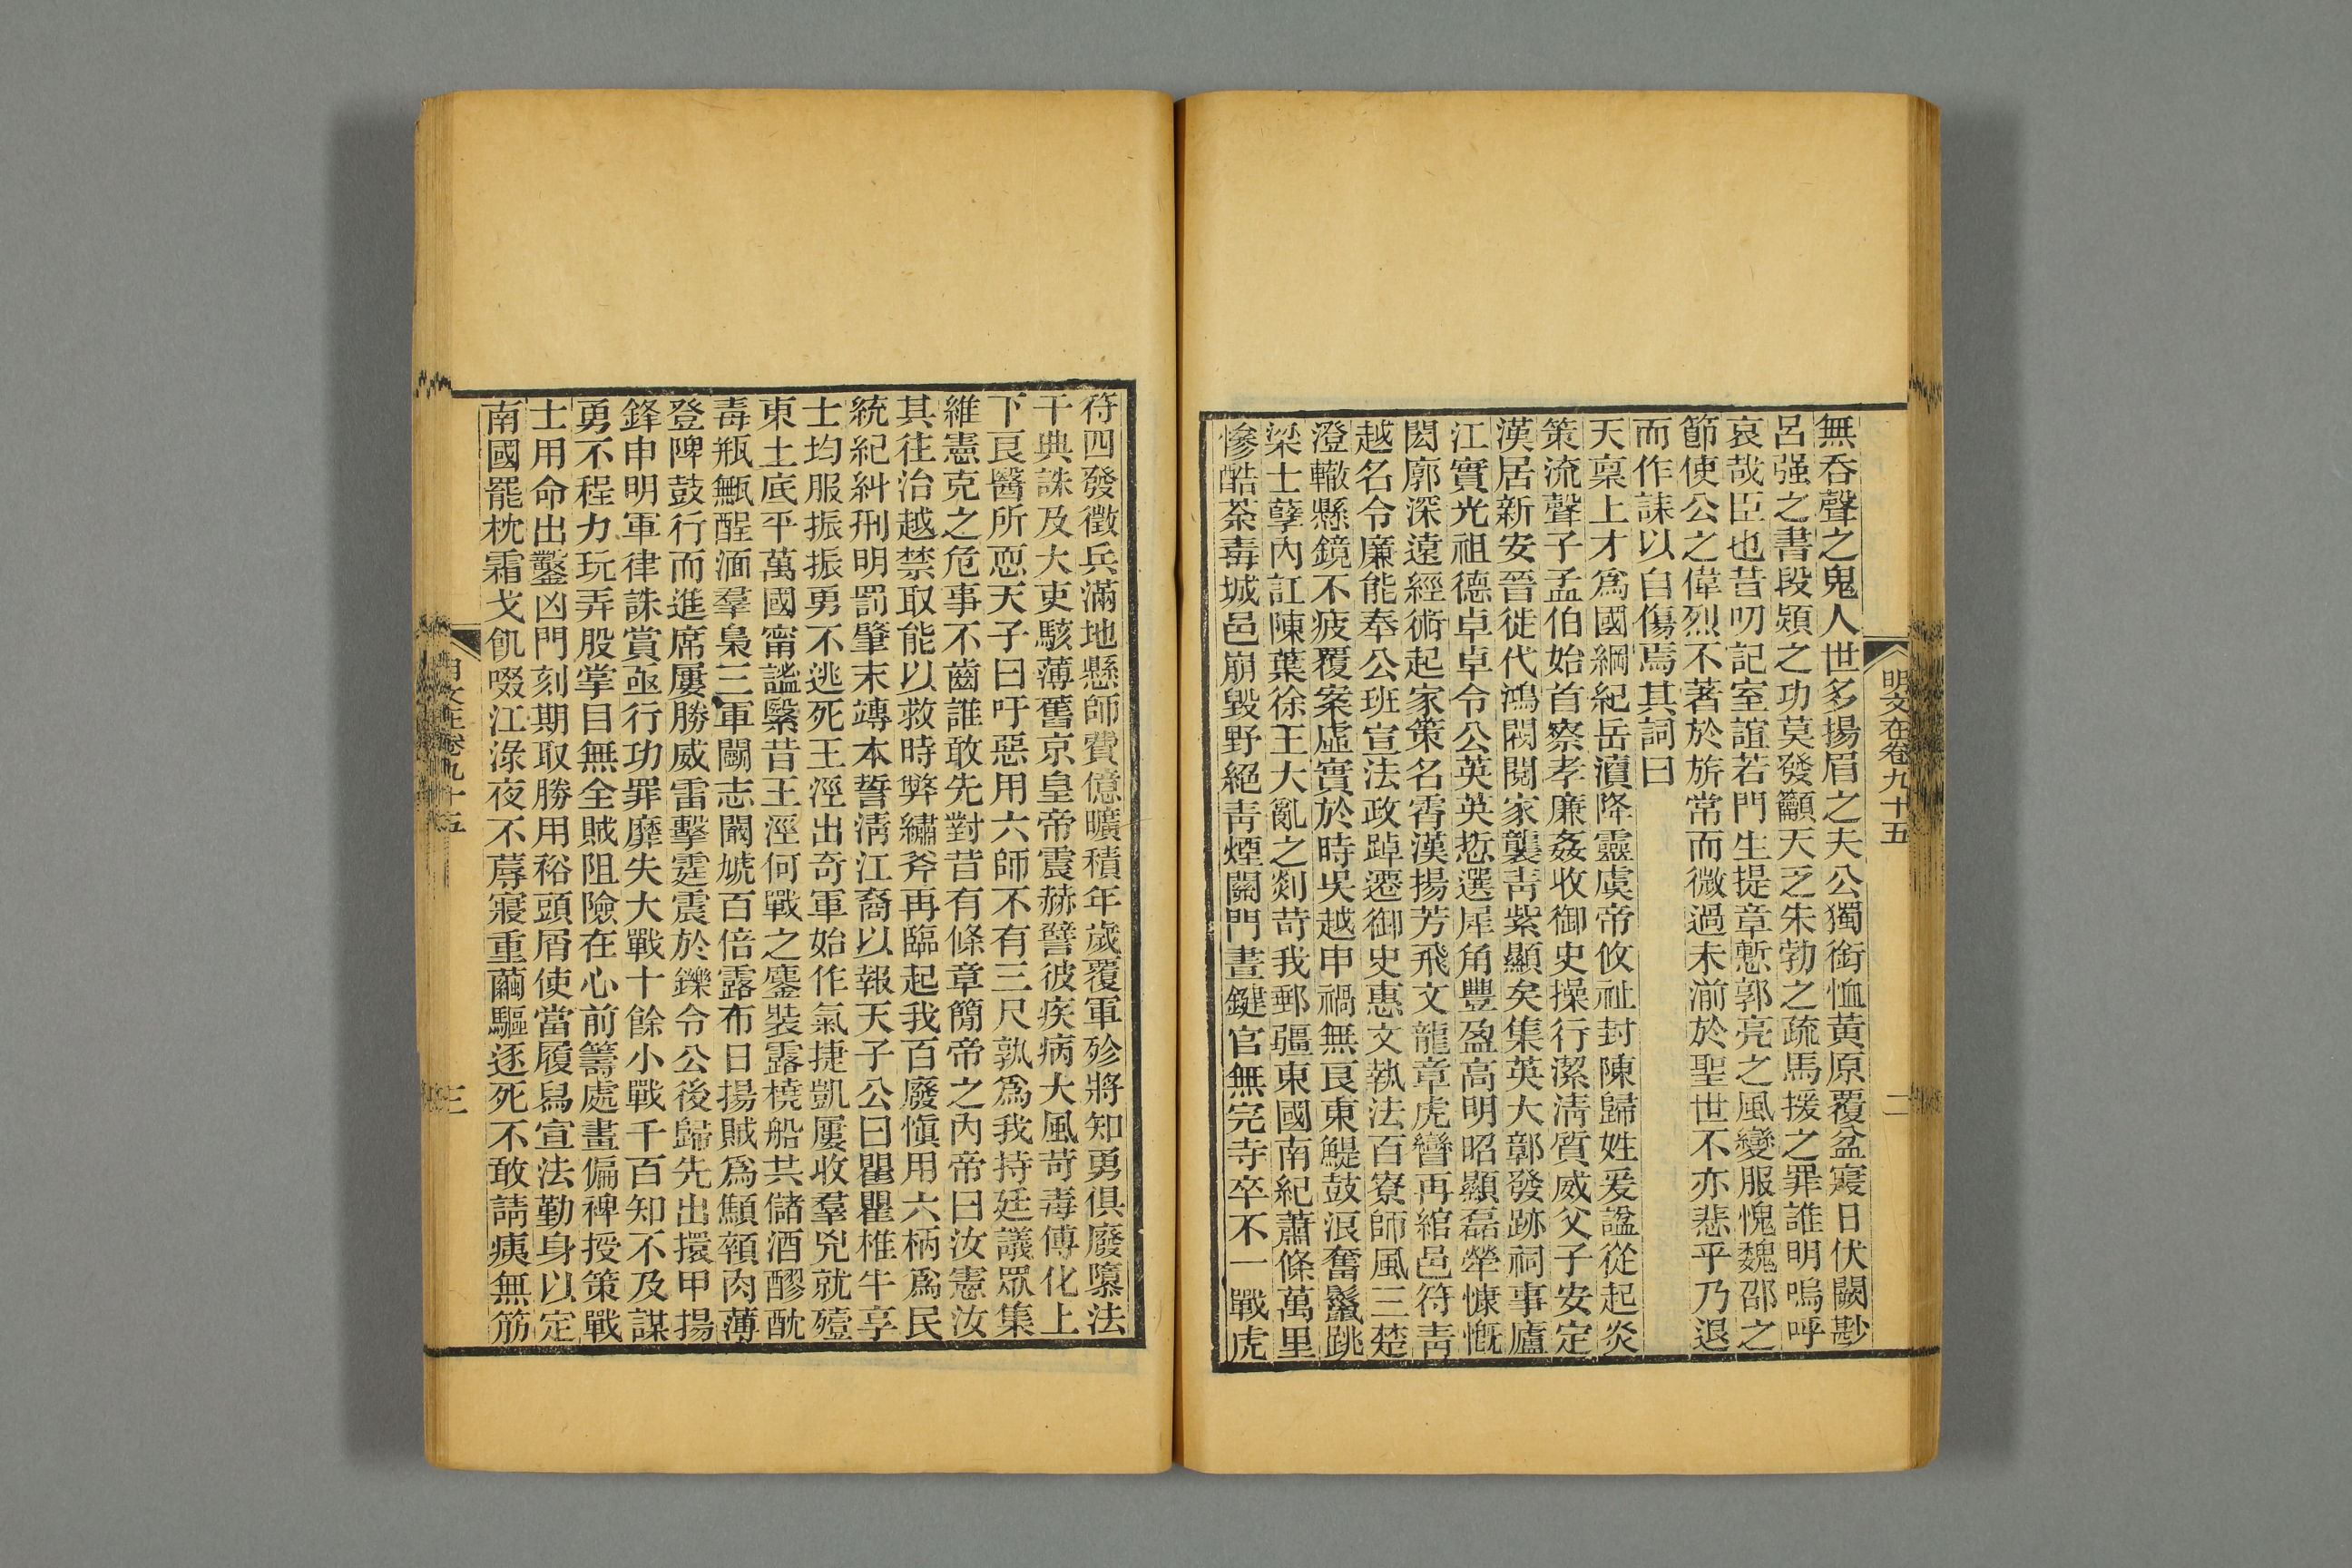 無吞聲之鬼人世多揚眉之夫公獨銜恤黃原覆盆寔日伏闕尠
呂强之書段熲之功莫發籲天乏朱勃之疏馬援之罪誰明嗚呼
哀哉臣也昔叨記室誼若門生提章慙郭亮之風變服愧魏邵之
節使公之偉烈不著於旂常而微過未湔於聖世不亦悲乎乃退
而作誄以自傷焉其詞曰
天稟上才爲國綱紀岳瀆降靈虞帝攸祉封陳歸姓爰諡從起炎
策流聲子孟伯始首察孝廉姦收御史操行潔淸質威父子安定
漢居新安晉徙代鴻閥閱家襲靑紫顯矣集英大鄣發跡祠事廬
江實光祖德卓卓令公英英悊選犀角豐盈高明昭顯磊犖慷慨
閎廓深遠經術起家策名霄漢揚芳飛文龍章虎彎再綰邑符靑
越名令廉能奉公班宣法政踔遷御史惠文執法百寮師風三楚
澄轍懸鏡不疲覆案虛實於時吳越申禍無良東鯷鼓浪奮鬣跳
梁士孽內訌陳葉徐王大亂之剡苛我郵疆東國南紀蕭條萬里
慘酷荼毒城邑崩毀野絕靑煙關門晝鍵官無完寺卒不一戰虎
明文在卷九十五
二
符四發徵兵滿地懸師費億曠積年歲覆軍殄將知勇俱廢隳法
干典誅及大吏駭薄舊京皇帝震赫譬彼疾病大風苛毒傅化上
下良醫所恧天子曰吁惡用六師不有三尺孰爲我持廷議眾集
維憲克之危事不齒誰敢先對昔有條章簡帝之內帝曰汝憲汝
其往治越禁取能以救時弊繡斧再臨起我百廢愼用六柄爲民
統紀糾刑明罰肇末竱本誓淸江裔以報天子公曰瞿瞿椎牛享
士均服振振勇不逃死王涇出奇軍始作氣捷凱屢收羣兇就殪
東土底平萬國甯謐繄昔王涇何戰之鏖裝露橈船共儲酒醪酖
毒瓶甒酲湎羣梟三軍鬬志闞虓百倍露布日揚賊爲顒顇肉薄
登陴鼓行而進席屢勝威雷擊霆震於鑠令公後歸先出擐甲揚
鋒申明軍律誅賞亟行功罪靡失大戰十餘小戰千百知不及謀
勇不程力玩弄股掌目無全賊阻險在心前籌處畫偏裨授策戰
士用命出鑿凶門刻期取勝用裕頭屑使當履舄宣法勤身以定
南國罷枕霜戈飢啜江淥夜不蓐寢重繭驅逐死不敢請痍無筋
明文在卷九十五
三